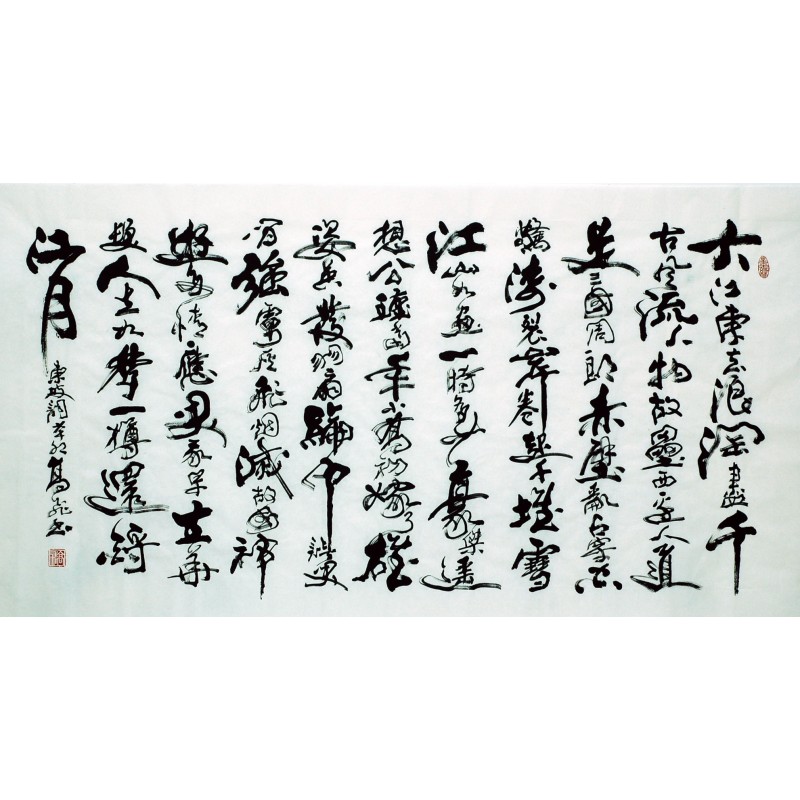 大江東去浪淘盡千
古風流人物故壘西邊人道
是三國周郎赤壁亂石穿空
驚濤裂岸卷起千堆雪
江山如畫一時多少豪傑遙
想公瑾當年小喬初嫁了雄
姿英發羽扇綸巾談笑
間強虜灰飛烟滅故國神
遊多情應笑我早生華
髮人生如夢一樽還酹
江月
東坡詞 飛書